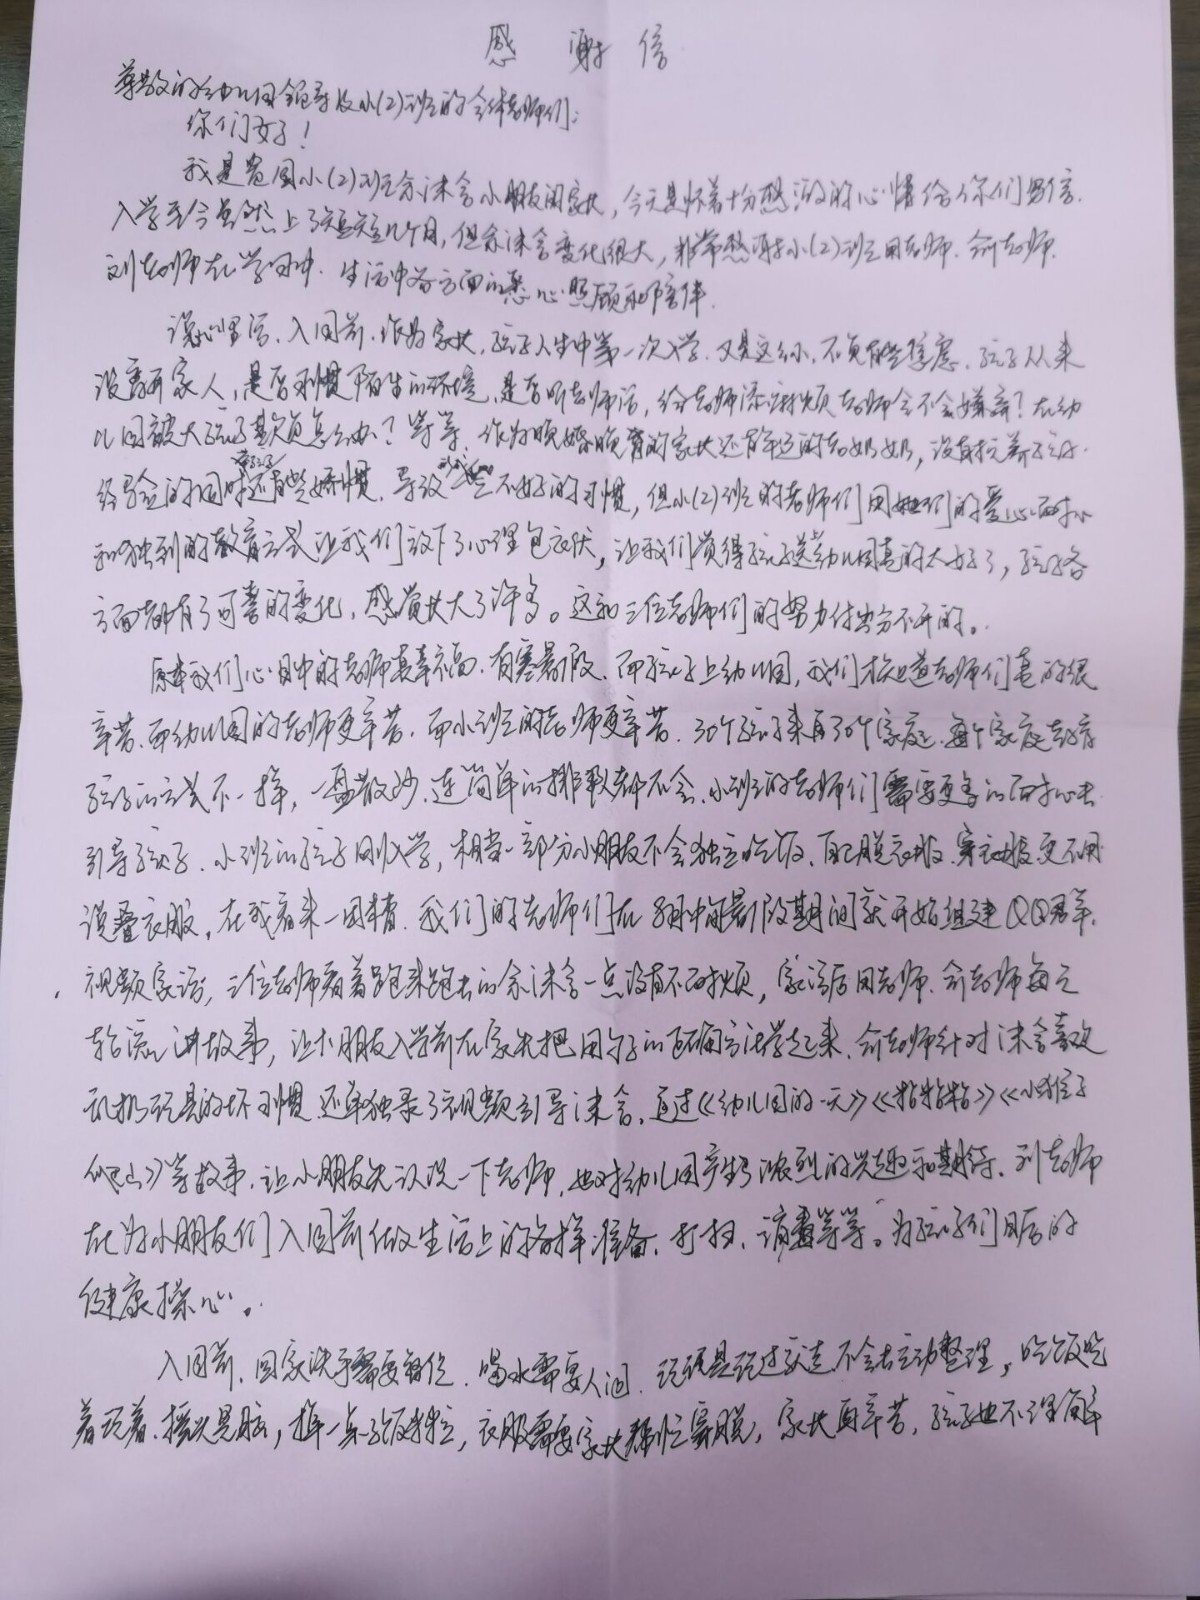 感谢信
尊敬的幼儿园领导及小(2)班的全体老师们:
你们好!
我是贵园小(2)班余沫含小朋友的家长,今天是怀着十分感激的心情给你们写信.
入学至今虽然上了短短几个月,但余沫含变化很大,非常感谢小(2)班周老师.俞老师.
刘老师在学习中.生活中各方面的悉心照顾和陪伴.
说心里话,入园前.作为家长,孩子人生中第一次入学.又是这么小.不免有些焦虑.孩子从来
没离开家人,是否习惯陌生的环境,是否听老师话,给老师添麻烦老师会不会嫌弃?在幼
儿园被大孩子欺负怎么办?等等.作为晚婚晚育的家长还有年迈的老奶奶,没有抚养孩子
经验的同时还有些娇惯.导致一些不好的习惯,但小(2)班的老师们用她们的爱心耐心
和独到的教育方式让我们放下了心理包袱,让我们觉得孩子送幼儿园真的太好了,孩子各
方面都有了可喜的变化,感觉长大了许多。这和三位老师们的努力付出分不开的。
原本我们心目中的老师真幸福.有寒暑假.而孩子上幼儿园,我们才知道老师们真的很
辛苦.而幼儿园的老师更辛苦.而小班的老师更辛苦.30个孩子来自30个家庭.每个家庭教育
孩子的方式不一样,一盘散沙.连简单的排队都不会.小班的老师们需要更多的耐心去
引导孩子.小班的孩子刚入学,相当一部分小朋友不会独立吃饭.自己脱衣服.穿衣服更不用
说叠衣服,在我看来一团糟.我们的老师们在8月中的暑假期间就开始组建QQ群.
视频家访,三位老师看着跑来跑去的余沫含一点没有不耐烦,家访后周老师.俞老师每天
轮流讲故事,让小朋友入学前在家先把用勺子的正确方法学起来.俞老师针对沫含喜欢
乱扔玩具的坏习惯.还单独录了视频引导沫含.通过《幼儿园的一天》《粘粘粘》《小猴子
爬山》等故事.让小朋友先认识一下老师.也对幼儿园产生了浓烈的兴趣和期待.刘老师
在为小朋友们入园前做生活上的各样准备.打扫.消毒等等。为孩子们日后的
健康操心。
入园前.回家洗手需要督促.喝水需要人追.玩具玩过就走不会去主动整理,吃饭吃
着玩着.掉一桌子饭粒,衣服需要家长帮忙穿脱,家长真辛苦,孩子也不理解